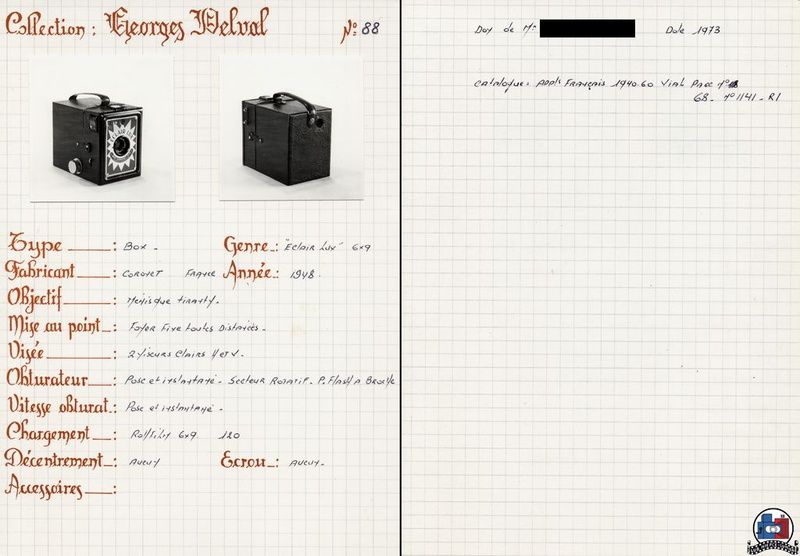 Collection : Georges Delval Nº: 88
ECLAIR LUX
Type : Box -
Genre : "Eclair Lux" 6x9
Fabricant : CORONET France
Année : 1948.
Objectif : Ménisque Tirauty.
Mise au point : Foyer Fixe toutes Distances -
Visée : 2 Viseurs Clairs H et V.
Obturateur : Pose et instantané - Secteur Rotatif - P. Flash A Broche
Vitesse obturat. : Pose et instantané -
Chargement : Rollfilm 6x9. 120
Décentrement : Aucun
Ecrou : Aucun.
Accessoires :
Don de Mr Date 1973
Catalogue : Appts Français 1940.60 Vial Page nº
68 - nº 1141 - R1